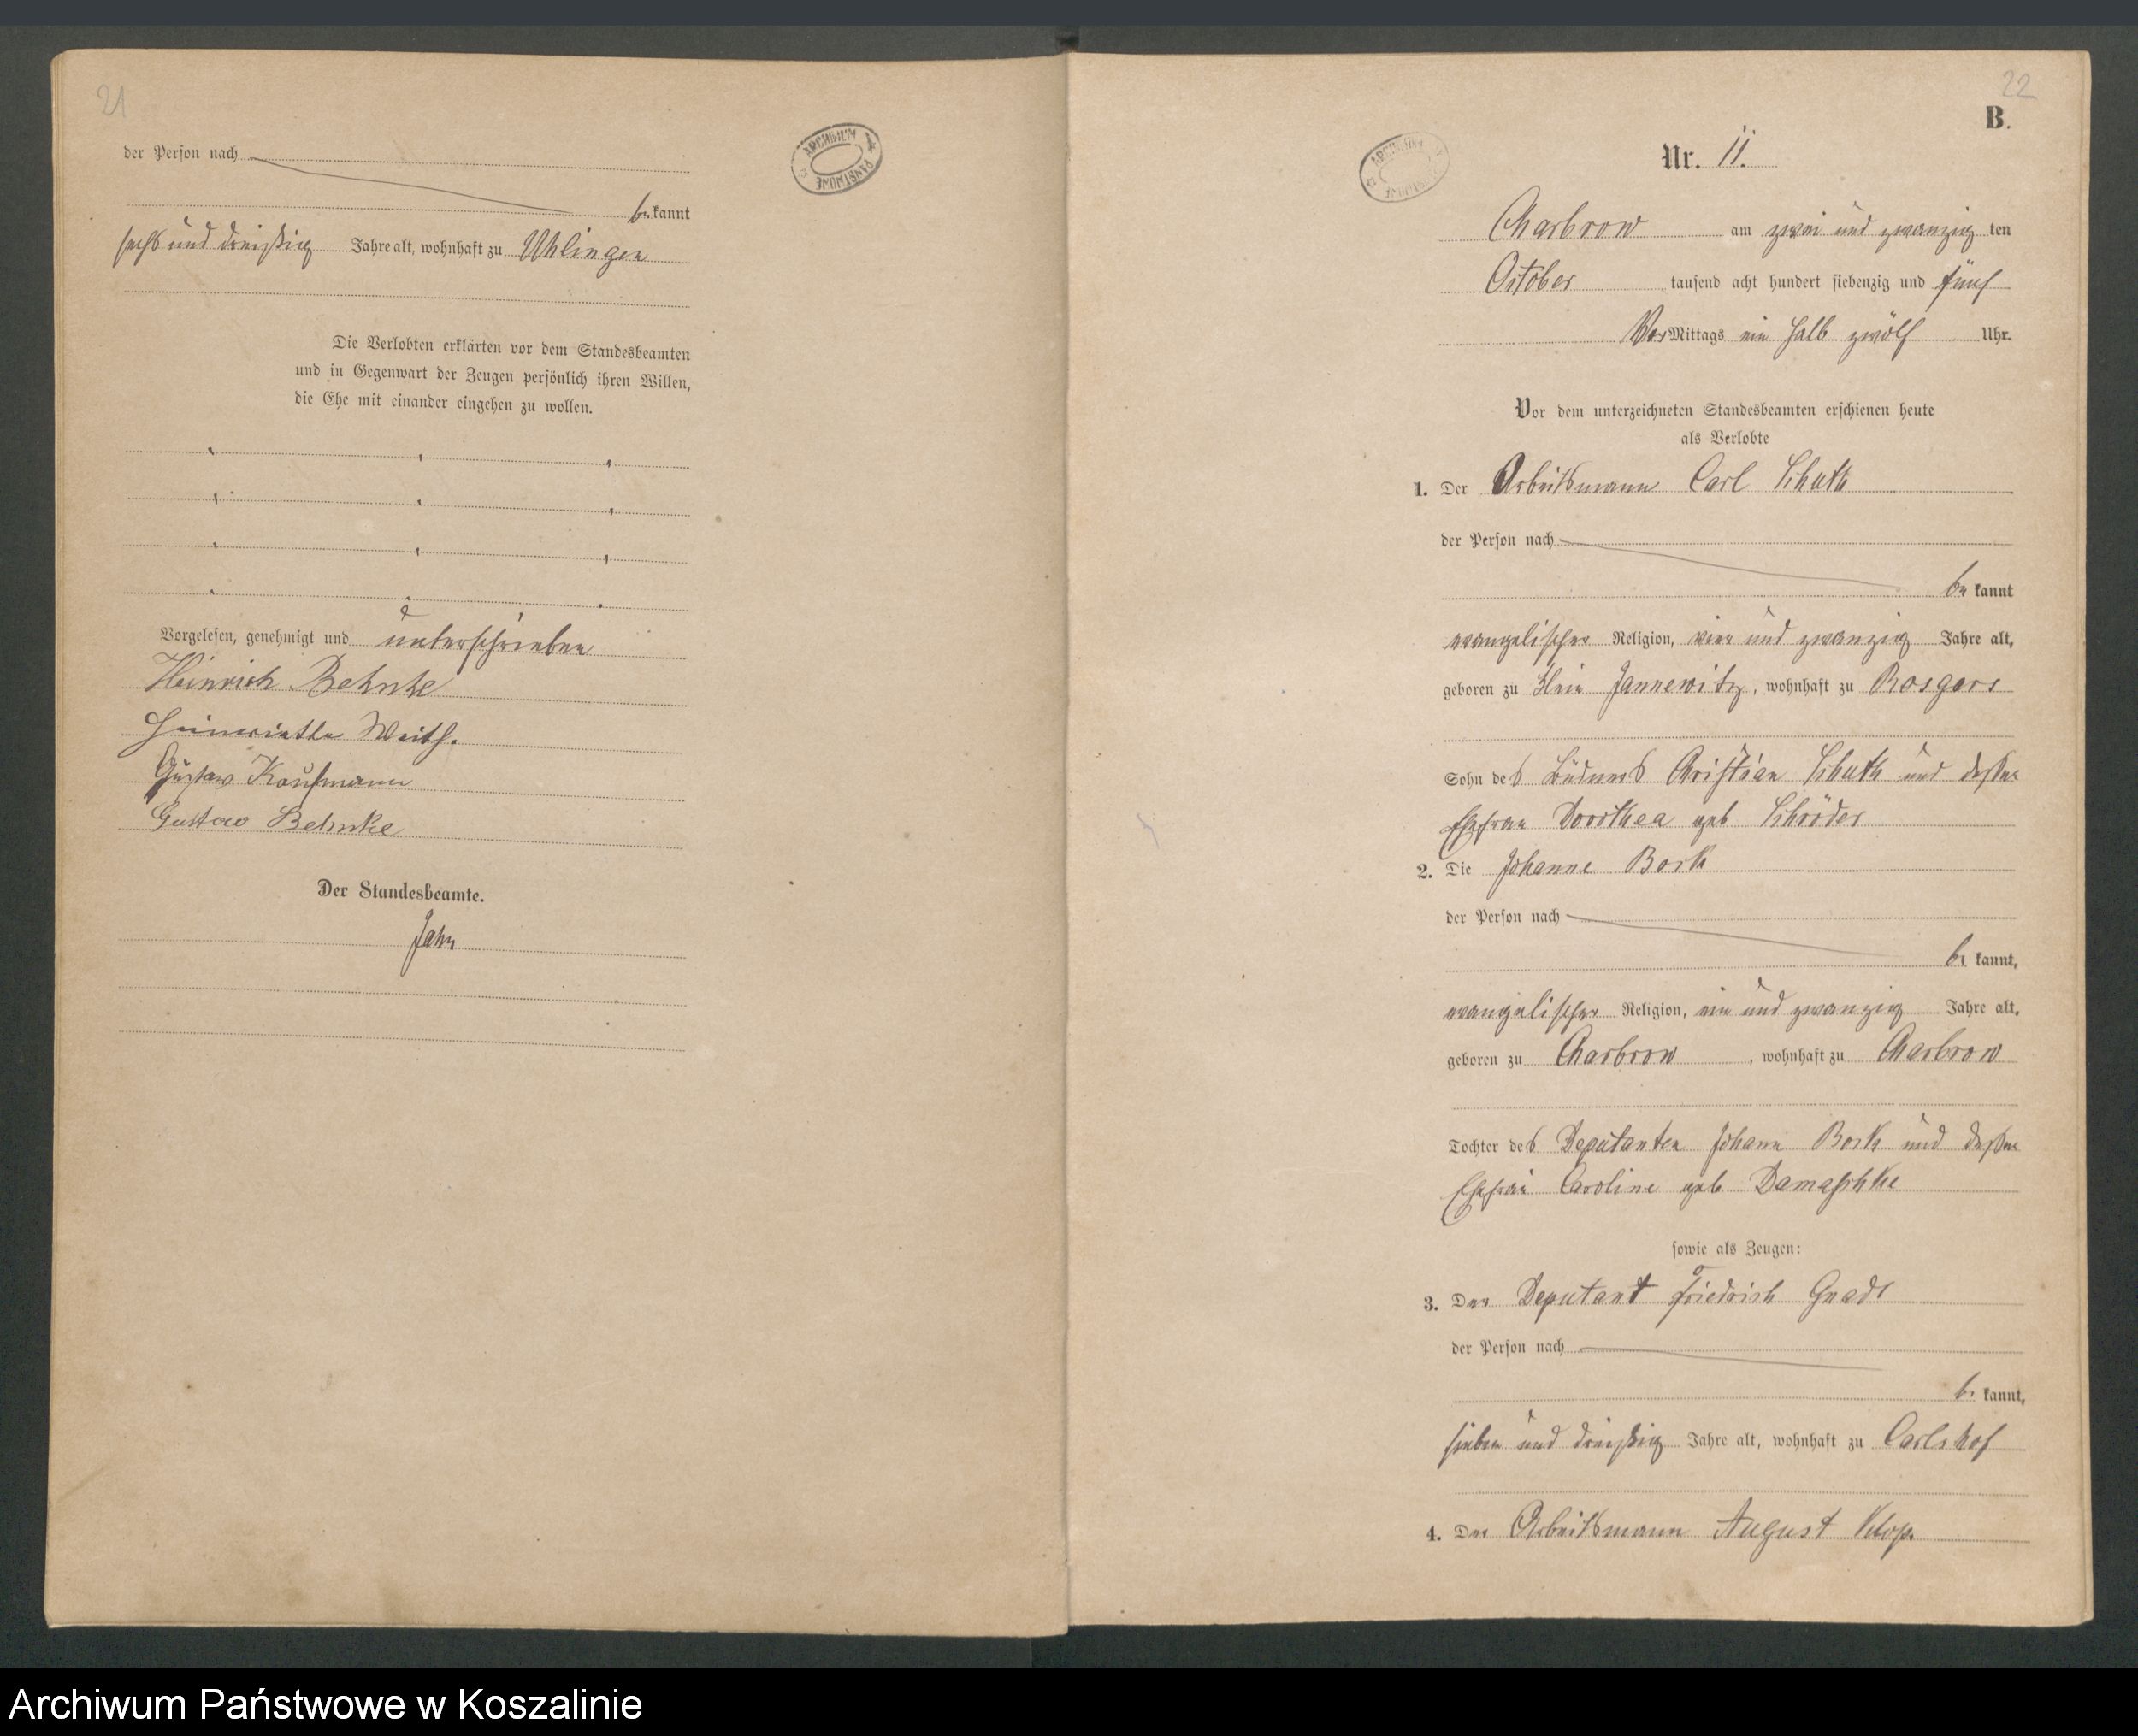 21
der Person nach
bekannt
sechs und dreißig Jahre alt, wohnhaft zu Uhlingen
Die Verlobten erklärten vor dem Standesbeamten
und in Gegenwart der Zeugen persönlich ihren Willen,
die Ehe mit einander eingehen zu wollen.
Vorgelesen, genehmigt und unterschrieben
Heinrich Behnke
Heinriette Weith.
Gustav Kaufmann
Gustav Behnke
Der Standesbeamte.
Jahn
ARCHIWUM PAŃSTWOWE
22
B.
ARCHIWUM PAŃSTWOWE
Nr. 11.
Charbrow am zwei und zwanzig ten
October tausend acht hundert siebenzig und fünf
Vor Mittags ein halb zwölf Uhr.
Vor dem unterzeichneten Standesbeamten erschienen heute
als Verlobte
1. Der Arbeitsmann Carl
der Person nach
be kannt
evangelischer Religion, vier und zwanzig Jahre alt,
geboren zu Klein Jannewitz, wohnhaft zu Rosgars
Sohn des Büdners Christian und dessen
Ehefrau Dorothea geb Schröder
2. Die Johanne Bork
der Person nach
be kannt,
evangelischer Religion, ein und zwanzig Jahre alt,
geboren zu Charbrow, wohnhaft zu Charbrow
Tochter des Deputanten Johann Bork und dessen
Ehefrau Caroline geb Damaschke
sowie als Zeugen:
3. Der Deputant Friedrich
der Person nach
be kannt,
sieben und dreißig Jahre alt, wohnhaft zu Carlshof
4. Der Arbeitsmann August
Archiwum Państwowe w Koszalinie